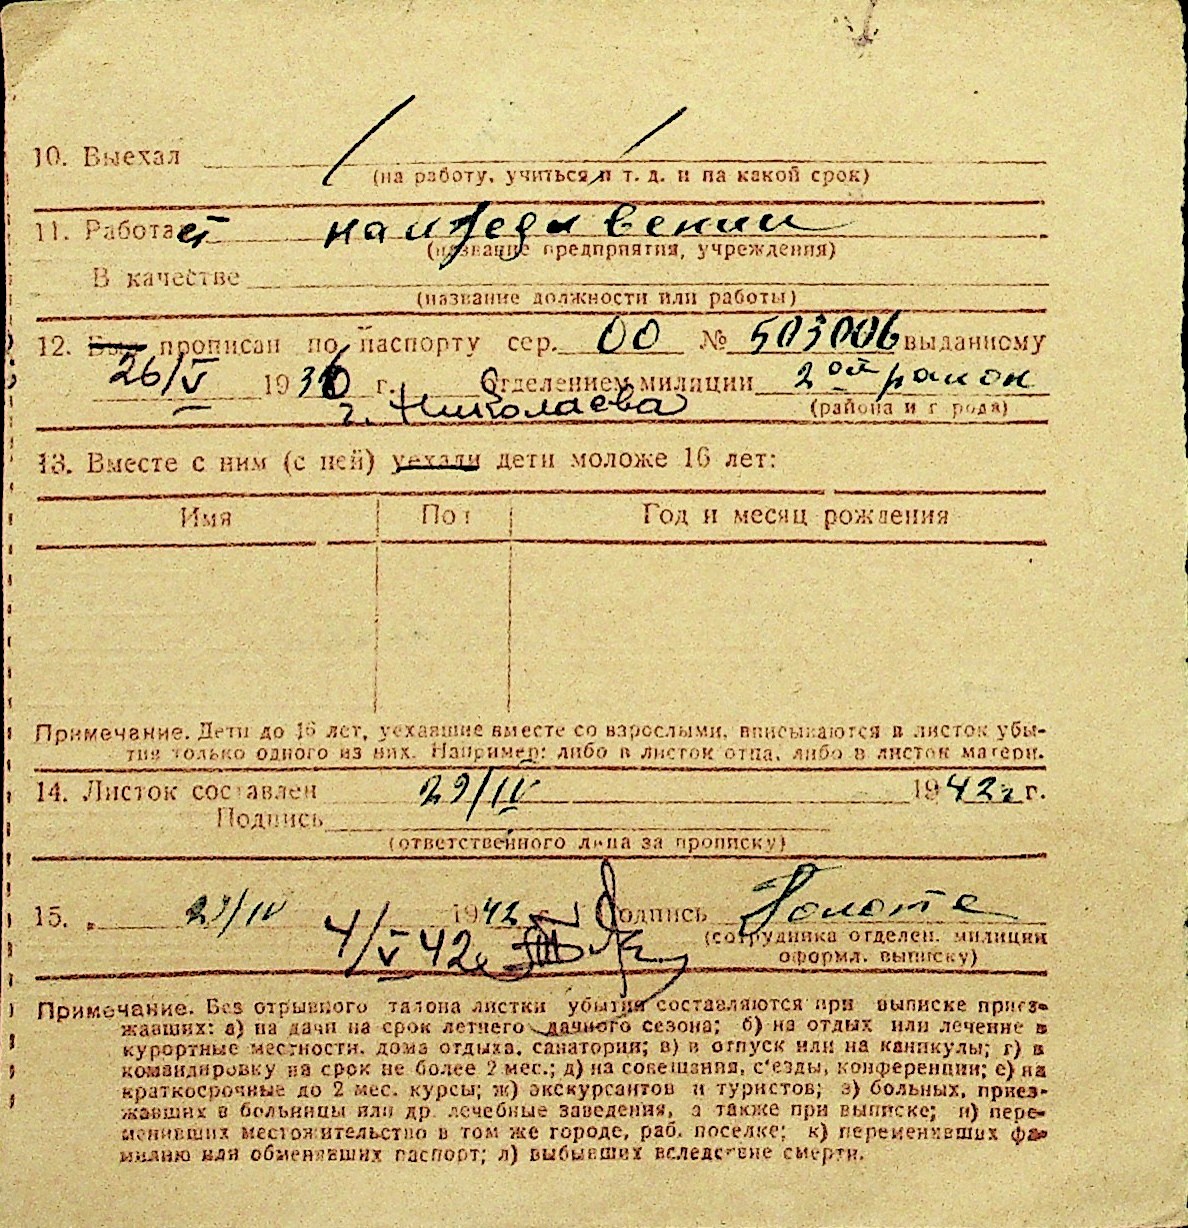 10. Выехал
(на работу, учиться и т. д. и на какой срок)
11. Работает на иждивении
(название предприятия, учреждения)
В качестве
(название должности или работы)
12. Был прописан по паспорту сер. 00 № 503006 выданному
26/V 1936 г. Отделением милиции 2ой район
г. Николаева (района и города)
13. Вместе с ним (с ней) уехали дети моложе 16 лет:
Имя Пол Год и месяц рождения
Примечание. Дети до 16 лет, уехавшие вместе со взрослыми, вписываются в листок убы-
тия только одного из них. Например: либо в листок отца, либо в листок матери.
14. Листок составлен 29/IV 1942 г.
Подпись
(ответственного лица за прописку)
15. 29/IV 1942 г. Подпись
(сотрудника отделен. милиции
4/V 42
оформл. выписку)
Примечание. Без отрывного талона листки убытия составляются при выписке приез-
жавших: а) на дачи на срок летнего дачного сезона; б) на отдых или лечение в
курортные местности, дома отдыха, санатории; в) в отпуск или на каникулы; г) в
командировку на срок не более 2 мес.; д) на совещания, с'езды, конференции; е) на
краткосрочные до 2 мес. курсы; ж) экскурсантов и туристов; з) больных, приез-
жавших в больницы или др. лечебные заведения, а также при выписке; и) пере-
менивших местожительство в том же городе, раб. поселке; к) переменивших фа-
милию или обменявших паспорт; л) выбывших вследствие смерти.